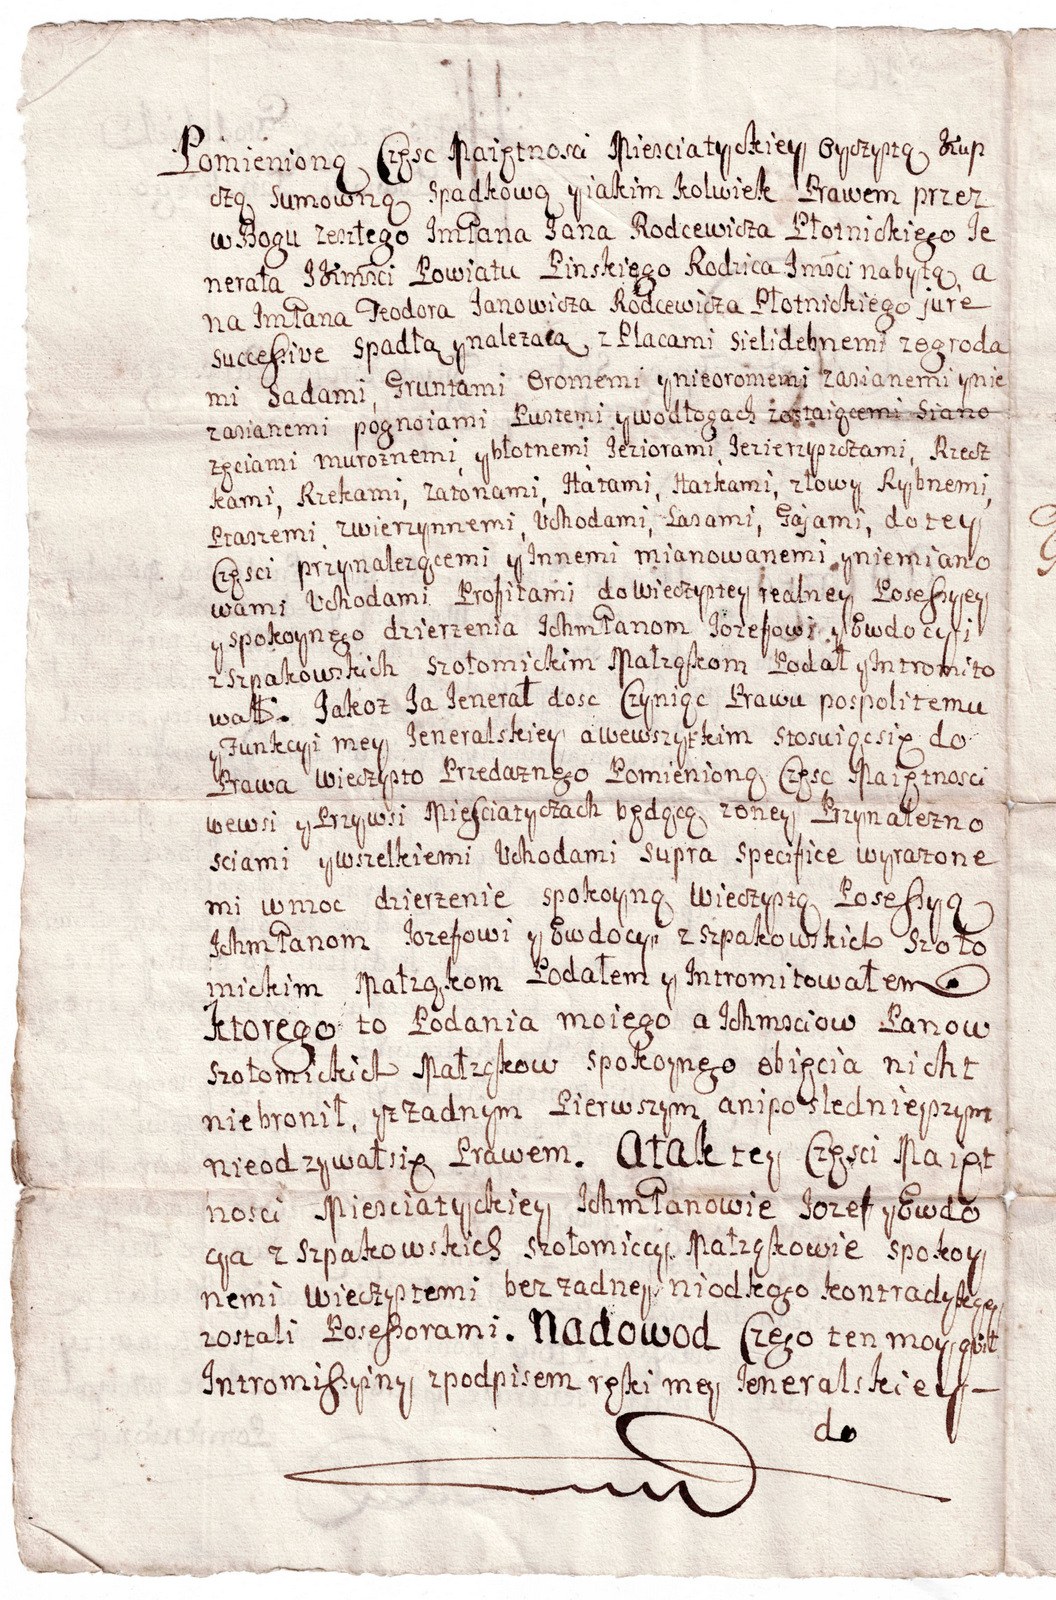 Pomienioną Częsc Maiętnosci Miesciatyckiey Oyczystą Kup
czą Sumowną Spadkową y iakim kolwiek Prawem przez
w Bogu zeszłego ImPana Jana Rodcewicza Płotnickiego Je
nerała JKmści Powiatu Pinskiego Rodzica Jmści nabytą, a
na ImPana Teodora Janowicza Rodcewicza Płotnickiego jure
successive spadłą y nalezącą z Placami Sielidebnemi z ogroda
mi Sadami, Gruntami Oromemi y nieoromemi zasianemi y nie
zasianemi pognoiami Pustemi y wodłogach zostaiącemi Siano
zęciami muroznemi y błotnemi Jeziorami, Jezierzysczami, Rzecz
kami, Rzekami, Zatonami, Hatami, Hatkami, z łowy Rybnemi,
Ptaszemi zwierzynnemi, Uchodami, Lasami, Gajami, do tey
Częsci przynalezącemi y Innemi mianowanemi y niemiano
wami Uchodami Profitami do wieczystey realney Posessyey
y spokoynego dzierzenia IchmPanom Jozefowi y Ewdocyi
z Szpakowskich Szołomickim Małząkom Podał y Intromito
wał. Jakoz Ja Jenerał dosc Czyniąc Prawu pospolitemu
y Funkcyi mey Jeneralskiey a wewszytkim stosuiącsię do
Prawa wieczysto Przedaznego Pomienioną Częsc Maiętnosci
wewsi y Przywsi Miesciatyczach będącą z oney Przynalezno
sciami y wszelkiemi Uchodami supra specifice wyrazone
mi w moc dzierzenie spokoyną wieczystą Posessyą
IchmPanom Jozefowi y Ewdocyi z Szpakowskich Szoło
mickim Małząkom Podałem y Intromitowałem
Ktorego to Podania moiego a Ichmsciow Panow
Szołomickich Małząkow spokoynego obięcia nicht
niebronił, y z Zadnym Pierwszym ani posledniejszym
nieodzywałsię Prawem. A tak tey Częsci Maięt
nosci Miesciatyckiey IchmPanowie Jozef y Ewdo
cya z Szpakowskich Szołomiccy Małząkowie spokoy
nemi wieczystemi bez zadney niodkogo kontradykcyey
zostali Posessorami. Na dowod Czego ten moy qwit
Intromissyiny z podpisem ręki mey Jeneralskiey
do